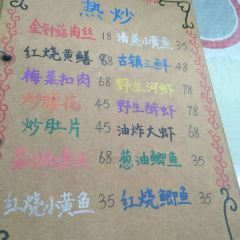 热炒
金针菇肉丝 18 清蒸小黄鱼 35
红烧黄鳝 88 古镇三鲜 48
梅菜扣肉 68 野生河虾 78
炒腰花 45 野生醉虾 78
炒肚片 45 油炸大虾 68
68 葱油鲫鱼 35
红烧小黄鱼 35 红烧鲫鱼 35